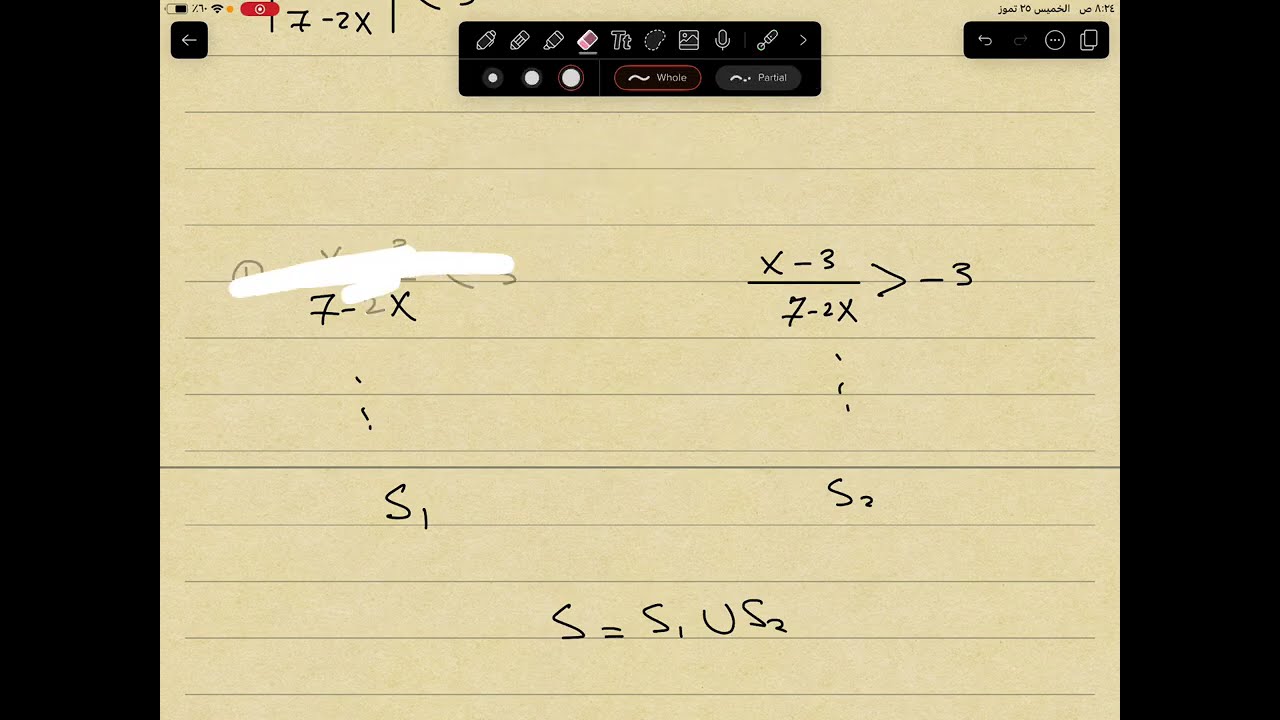 ٪٦٠ ٨:٢٤ ص الخميس ٢٥ تموز
7-2x
Tt
Whole Partial
x-3 x-3
7-2x 7-2x > -3
S₁ S₂
S = S₁ ∪ S₂